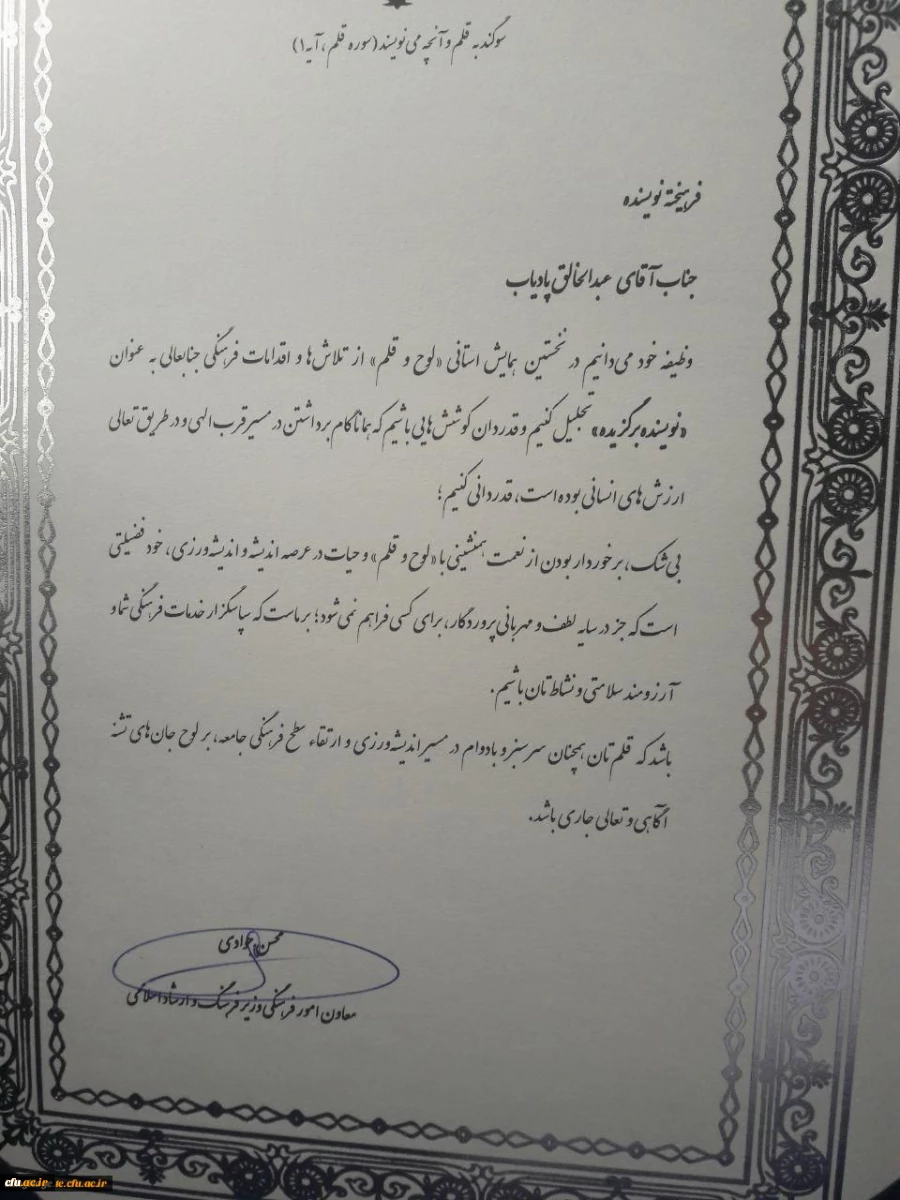 سوگند به قلم و آنچه می‌نویسند (سوره قلم، آیه ۱)
فرهیختهٔ نویسنده
جناب آقای عبدالخالق پادیاب
وظیفه خود می‌دانیم در نخستین همایش استانی «لوح و قلم» از تلاش‌ها و اقدامات فرهنگی جنابعالی به عنوان
«نویسنده برگزیده» تجلیل کنیم و قدردان کوشش‌هایی باشیم که همانا گام برداشتن در مسیر قرب الهی و در طریق تعالی
ارزش‌های انسانی بوده است، قدردانی کنیم؛
بی‌شک، برخوردار بودن از نعمت همنشینی با «لوح و قلم» و حیات در عرصه اندیشه و اندیشه‌ورزی، خود فضیلتی
است که جز در سایه لطف و مهربانی پروردگار، برای کسی فراهم نمی‌شود؛ بر ماست که سپاسگزار خدمات فرهنگی شما و
آرزومند سلامتی و نشاط‌تان باشیم.
باشد که قلم‌تان همچنان سرسبز و بادوام در مسیر اندیشه‌ورزی و ارتقاء سطح فرهنگی جامعه، بر لوح جان‌های تشنه
آگاهی و تعالی جاری باشد.
محسن جوادی
معاون امور فرهنگی وزیر فرهنگ و ارشاد اسلامی
cfu.ac.ir
te.cfu.ac.ir